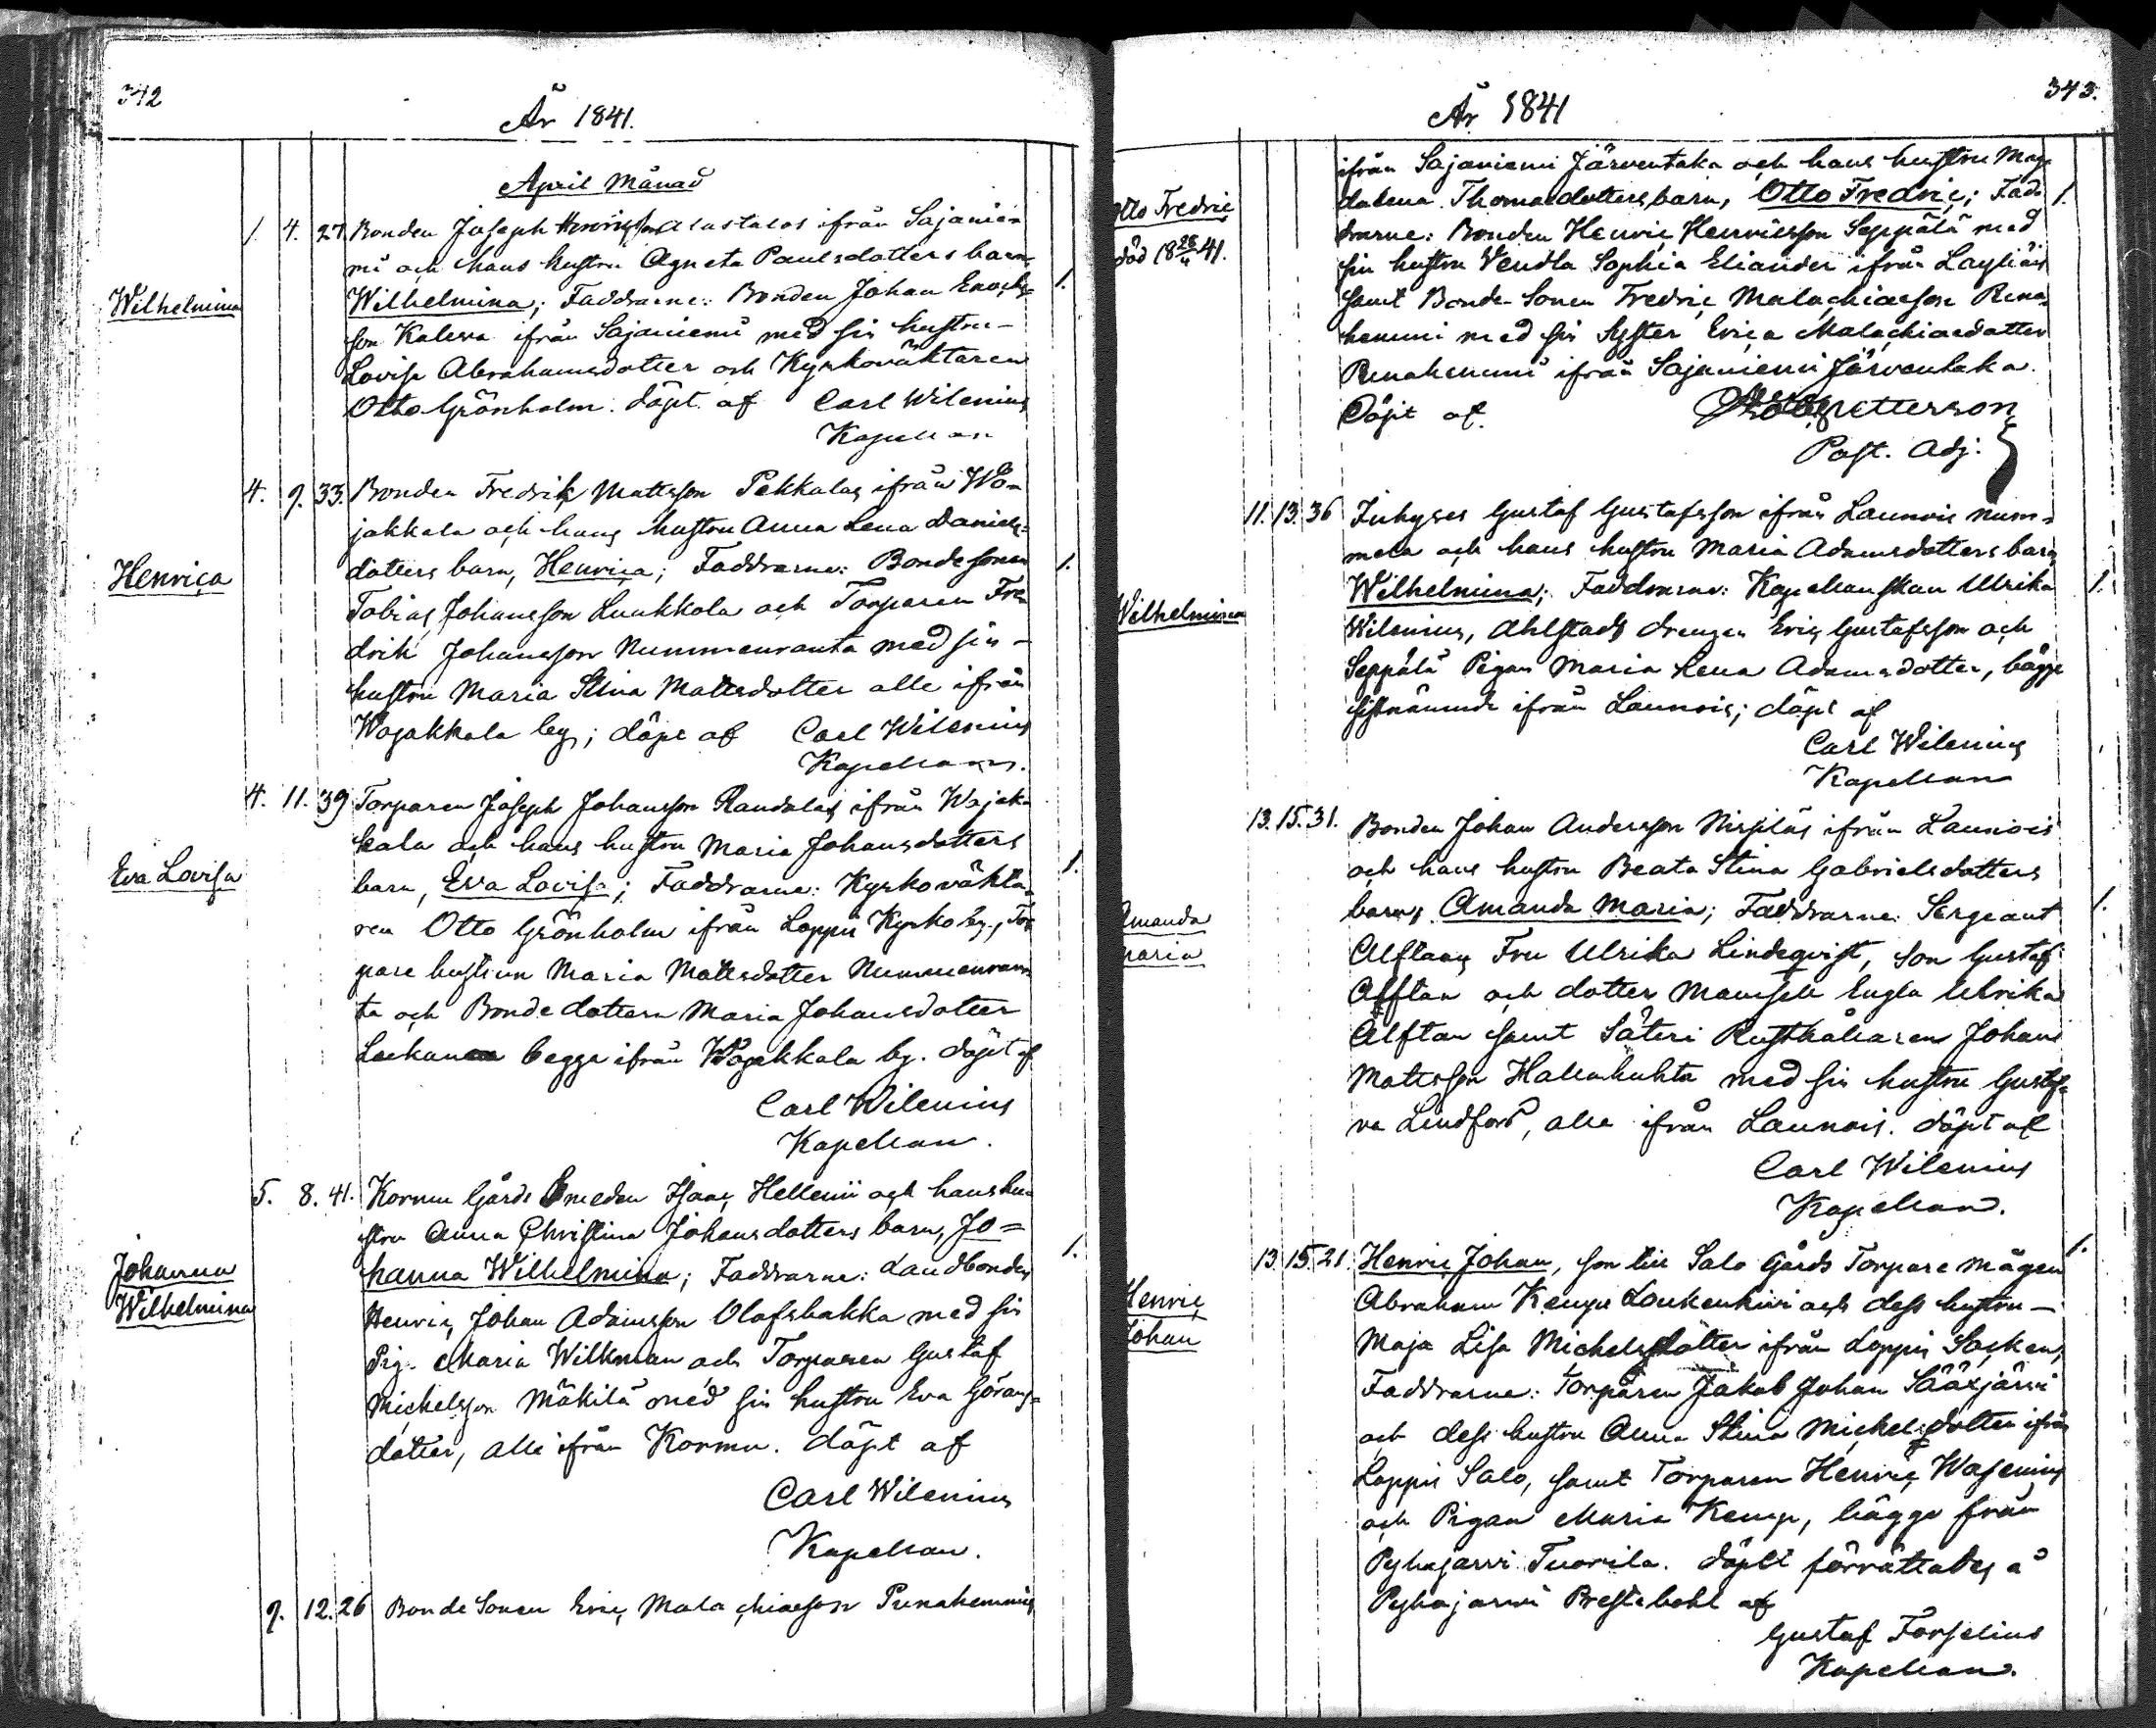 342
År 1841.
April Månad
Wilhelmina
1. 4. 27. Bonden Joseph Henricsson Alastalos ifrån Sajanie=
mi och hans hustru Agneta Paulsdotters barn,
Wilhelmina; Faddrarne: Bonden Johan Enochs= 1.
son Kaleva ifrån Sajaniemi med sin hustru
Lovisa Abrahamsdotter och Kyrkoväktaren
Otto Grönholm. döpt af Carl Wilenius
Kapellan
Henrica
4. 9. 33. Bonden Fredrik Mattsson Pekkalas ifrån Wo=
jakkala och hans hustru Anna Lena Daniels=
dotters barn, Henrica; Faddrarne: Bondesonen 1.
Tobias Johansson Luukkola och Torparen Fre=
drik Johansson Nummenranta med sin
hustru Maria Stina Mattsdotter alle ifrån
Wojakkala by; döpt af Carl Wilenius
Kapellan.
Eva Lovisa
4. 11. 39 Torparen Joseph Johansson Randalas ifrån Wojak=
kala och hans hustru Maria Johansdotters
barn, Eva Lovisa; Faddrarne: Kyrkoväkta= 1.
ren Otto Grönholm ifrån Loppis Kyrkoby, Tor
pare hustrun Maria Mattsdotter Nummenran
ta och Bondedottern Maria Johansdotter
begge ifrån Wojakkala by. döpt af
Carl Wilenius
Kapellan.
Johanna
Wilhelmina
5. 8. 41. Kormu Gårds Smeden Isaac Hellenii och hans hu=
stru Anna Christina Johansdotters barn, Jo=
hanna Wilhelmina; Faddrarne: Landbonden 1.
Henric Johan Adamsson Olafsbakka med sin
Pig. Maria Wilkman och Torparen Gustaf
Michelsson Mäkilä med sin hustru Eva Görans=
dotter, alle ifrån Kormu. döpt af
Carl Wilenius
Kapellan.
9. 12. 26 Bonde Sonen Eric Malachiaesson Punahemmis
343.
År 1841
Otto Fredric
död 18 26/4 41.
ifrån Sajaniemi Järventaka och hans hustru Mag=
dalena Thomaedotters barn, Otto Fredric; Fad= 1.
drarne: Bonden Henric Henricsson Seppälä med
sin hustru Vendla Sophia Eliander ifrån Layliäis
samt Bonde Sonen Fredric Malachiaesson Puna=
hemmi med sin Syster Erica Malachiaedotter
Punahemmi ifrån Sajaniemi Järventaka.
Döpt af. Petterson
Past. Adj.
Wilhelmina
11. 13. 36 Inhyses Gustaf Gustafsson ifrån Launois num=
mela och hans hustru Maria Adamsdotters barn,
Wilhelmina; Faddrarne: Kapellanskan Ulrika 1.
Wilenius, Ahlstads drengen Eric Gustafsson och
Seppälä Pigan Maria Lena Adamsdotter, bägge
sistnämnde ifrån Launois; döpt af
Carl Wilenius
Kapellan
Amanda
Maria
13. 15. 31. Bonden Johan Andersson Nirpiläs ifrån Launois
och hans hustru Beata Stina Gabrielsdotters
barn, Amanda Maria; Faddrarne: Sergeant 1.
Alftans Fru Ulrika Lindeqvist, Son Gustaf
Alftan och dotter Mamsell Engla Ulrika
Alftan samt Säteri Rusthållaren Johan
Mattsson Hallakuhta med sin hustru Gusta=
va Lindfors, alle ifrån Launois. döpt af
Carl Wilenius
Kapellan.
Henric
Johan
13. 15. 21. Henric Johan, son till Salo Gårds Torpare mågen 1.
Abraham Kemps Loukenkivi och dess hustru
Maja Lisa Michelsdotter ifrån Loppis Socken,
Faddrarne: Torparen Jakob Johan Sääxjärvi
och dess hustru Anna Stina Michelsdotter ifrån
Loppis Salo, samt Torparen Henric Wasenius
och Pigan Maria Kemp, bägge från
Pyhäjärvi Tuorila. döpelt förrättades å
Pyhajarvi Prestebohl af
Gustaf Forselius
Kapellan.